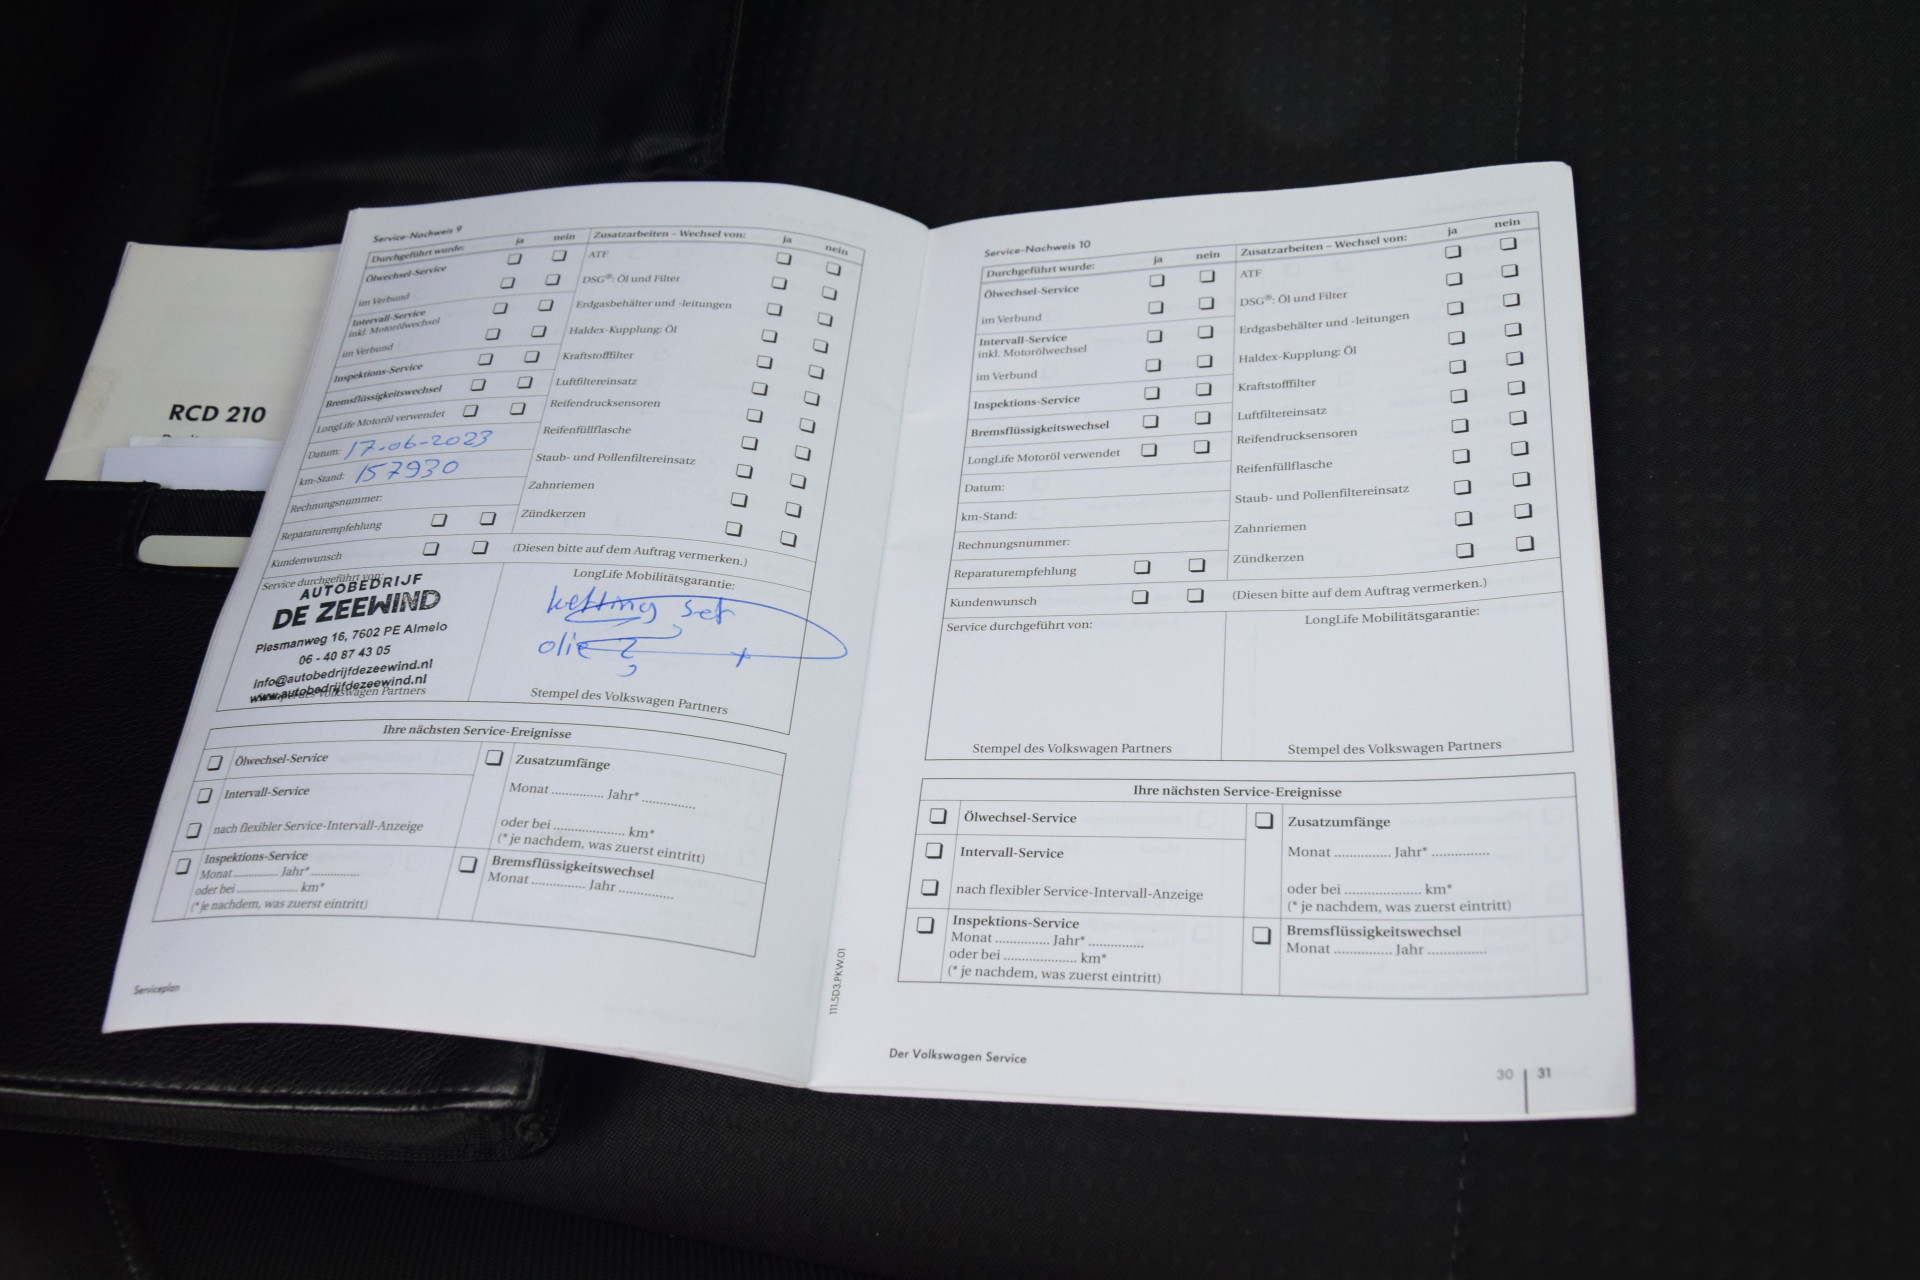 RCD 210
Service-Nachweis 9
Durchgeführt wurde: ja nein
Ölwechsel-Service
im Verbund
Intervall-Service
inkl. Motorölwechsel
im Verbund
Inspektions-Service
Bremsflüssigkeitswechsel
LongLife Motoröl verwendet
Datum: 17-06-2023
km-Stand: 157930
Rechnungsnummer:
Reparaturempfehlung
Kundenwunsch
Zusatzarbeiten – Wechsel von: ja nein
ATF
DSG®: Öl und Filter
Erdgasbehälter und -leitungen
Haldex-Kupplung: Öl
Kraftstofffilter
Luftfiltereinsatz
Reifendrucksensoren
Reifenfüllflasche
Staub- und Pollenfiltereinsatz
Zahnriemen
Zündkerzen
(Diesen bitte auf dem Auftrag vermerken.)
Service durchgeführt von:
AUTOBEDRIJF
DE ZEEWIND
Plesmanweg 16, 7602 PE Almelo
06 - 40 87 43 05
info@autobedrijfdezeewind.nl
www.autobedrijfdezeewind.nl
Volkswagen Partners
LongLife Mobilitätsgarantie:
ketting set
olie
Stempel des Volkswagen Partners
Ihre nächsten Service-Ereignisse
Ölwechsel-Service
Intervall-Service
nach flexibler Service-Intervall-Anzeige
Inspektions-Service
Monat .............. Jahr* ..............
oder bei .................. km*
(* je nachdem, was zuerst eintritt)
Zusatzumfänge
Monat .............. Jahr* ..............
oder bei .................. km*
(* je nachdem, was zuerst eintritt)
Bremsflüssigkeitswechsel
Monat .............. Jahr ..............
Serviceplan
111.5D3.PKW.01
Service-Nachweis 10
Durchgeführt wurde: ja nein
Ölwechsel-Service
im Verbund
Intervall-Service
inkl. Motorölwechsel
im Verbund
Inspektions-Service
Bremsflüssigkeitswechsel
LongLife Motoröl verwendet
Datum:
km-Stand:
Rechnungsnummer:
Reparaturempfehlung
Kundenwunsch
Zusatzarbeiten – Wechsel von: ja nein
ATF
DSG®: Öl und Filter
Erdgasbehälter und -leitungen
Haldex-Kupplung: Öl
Kraftstofffilter
Luftfiltereinsatz
Reifendrucksensoren
Reifenfüllflasche
Staub- und Pollenfiltereinsatz
Zahnriemen
Zündkerzen
(Diesen bitte auf dem Auftrag vermerken.)
Service durchgeführt von:
Stempel des Volkswagen Partners
LongLife Mobilitätsgarantie:
Stempel des Volkswagen Partners
Ihre nächsten Service-Ereignisse
Ölwechsel-Service
Intervall-Service
nach flexibler Service-Intervall-Anzeige
Inspektions-Service
Monat .............. Jahr* ..............
oder bei .................. km*
(* je nachdem, was zuerst eintritt)
Zusatzumfänge
Monat .............. Jahr* ..............
oder bei .................. km*
(* je nachdem, was zuerst eintritt)
Bremsflüssigkeitswechsel
Monat .............. Jahr ..............
Der Volkswagen Service
30 | 31